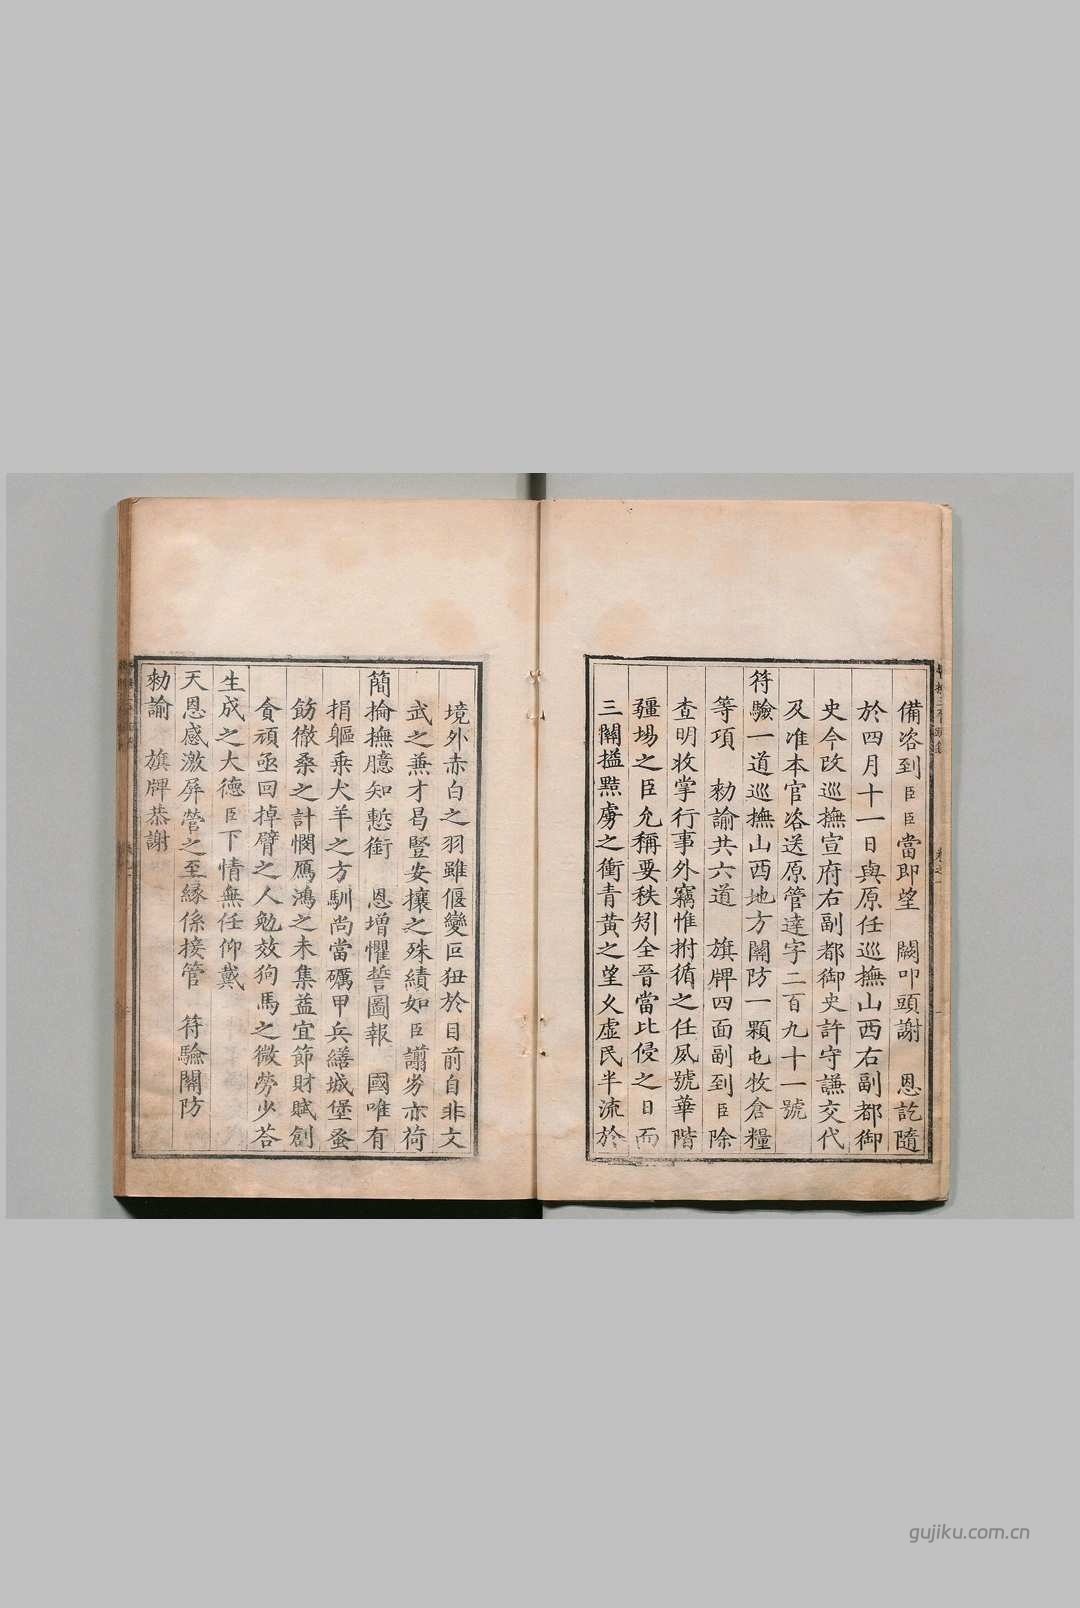 備咨到臣臣當即望　闕叩頭謝　恩訖隨
於四月十一日與原任巡撫山西右副都御
史今改巡撫宣府右副都御史許守謙交代
及准本官咨送原管達字二百九十一號
符驗一道巡撫山西地方關防一顆屯牧倉糧
等項　勑諭共六道　旗牌四面副到臣除
查明收掌行事外竊惟拊循之任夙號華階
疆場之臣允稱要秩矧全晉當比侵之日而
三關搤黠虜之衝青黃之望乆虛民半流於
境外赤白之羽雖偃變叵狃於目前自非文
武之兼才曷豎安攘之殊績如臣譾劣亦荷
簡掄撫臆知慙銜　恩增懼誓圖報　國唯有
捐軀乘犬羊之方馴尚當礪甲兵繕城堡蚤
飭徹桑之計憫鴈鴻之未集益宜節財賦創
貪頑亟回掉臂之人勉效狗馬之微勞少荅
生成之大德臣下情無任仰戴
天恩感激屏營之至緣係接管　符驗關防
勑諭　旗牌恭謝
gujiku.com.cn